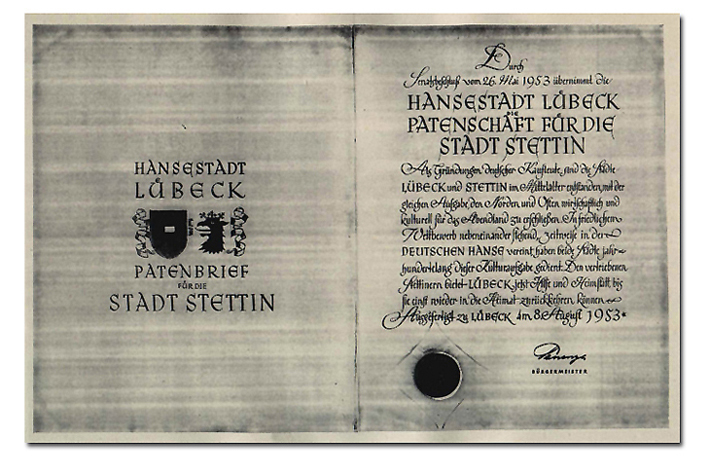 HANSESTADT
LÜBECK
PATENBRIEF
FÜR DIE
STADT STETTIN
Durch
Senatsbeschluß vom 26. Mai 1953 übernimmt die
HANSESTADT LÜBECK
DIE
PATENSCHAFT FÜR DIE
STADT STETTIN
Als Gründungen deutscher Kaufleute sind die Städte
LÜBECK und STETTIN im Mittelalter entstanden, mit der
gleichen Aufgabe, den Norden und Osten wirtschaftlich und
kulturell für das Abendland zu erschließen. In friedlichem
Wettbewerb nebeneinander stehend, zeitweise in der
DEUTSCHEN HANSE vereint, haben beide Städte jahr-
hundertelang dieser Kulturaufgabe gedient. Den vertriebenen
Stettinern bietet LÜBECK jetzt Hilfe und Heimstatt bis
sie einst wieder in die Heimat zurückkehren können
Ausgefertigt zu LÜBECK am 8. August 1953
BÜRGERMEISTER